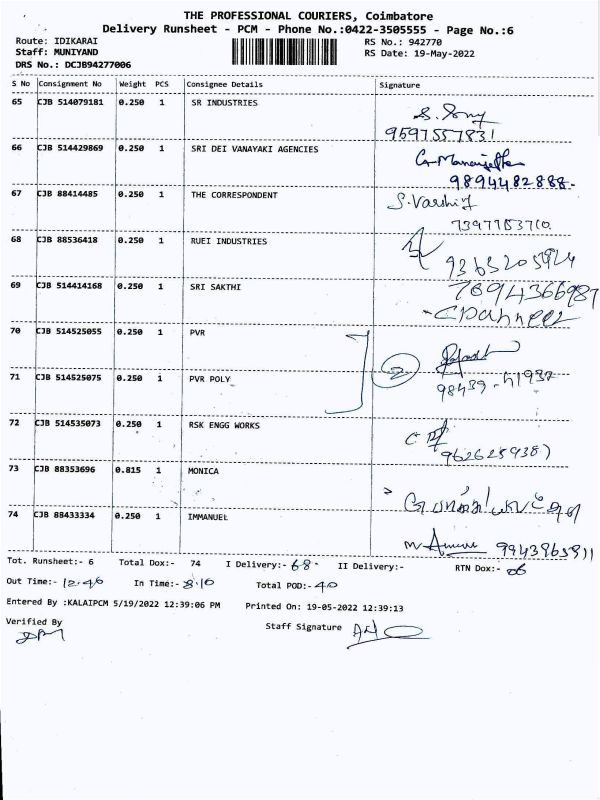 THE PROFESSIONAL COURIERS, Coimbatore
Delivery Runsheet - PCM - Phone No.:0422-3505555 - Page No.:6
Route: IDIKARAI
RS No.: 942770
Staff: MUNIYAND
RS Date: 19-May-2022
DRS No.: DCJB94277006
S No Consignment No Weight PCS Consignee Details Signature
65 CJB 514079181 0.250 1 SR INDUSTRIES
9597557831
66 CJB 514429869 0.250 1 SRI DEI VANAYAKI AGENCIES
9894482888-
67 CJB 88414485 0.250 1 THE CORRESPONDENT S.Varshi
68 CJB 88536418 0.250 1 RUEI INDUSTRIES
9363205924
69 CJB 514414168 0.250 1 SRI SAKTHI 7894366987
70 CJB 514525055 0.250 1 PVR
2
71 CJB 514525075 0.250 1 PVR POLY 98439-41937
72 CJB 514535073 0.250 1 RSK ENGG WORKS
9626259387
73 CJB 88353696 0.815 1 MONICA
74 CJB 88433334 0.250 1 IMMANUEL
9943965911
Tot. Runsheet:- 6 Total Dox:- 74 I Delivery:- 68- II Delivery:- RTN Dox:- 06
Out Time:- 12.40 In Time:- 8.10 Total POD:- 40
Entered By :KALAIPCM 5/19/2022 12:39:06 PM Printed On: 19-05-2022 12:39:13
Verified By
Staff Signature